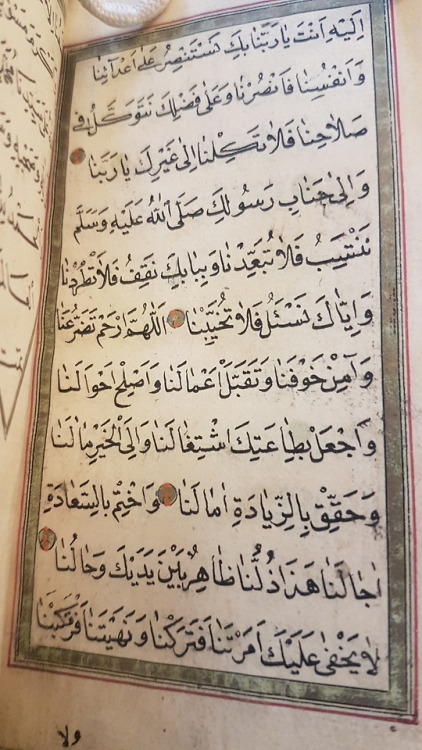 اِلَيْهِ اَنْتَ يَا رَبَّنَا بِكَ نَسْتَنْصِرُ عَلٰى اَعْدَآئِنَا
وَاَنْفُسِنَا فَانْصُرْنَا وَعَلٰى فَضْلِكَ نَتَوَكَّلُ فِى
صَلَاحِنَا فَلَا تَكِلْنَا اِلٰى غَيْرِكَ يَا رَبَّنَا
وَاِلٰى جَنَابِ رَسُولِكَ صَلَّى اللّٰهُ عَلَيْهِ وَسَلَّمَ
نَنْتَسِبُ فَلَا تُبَعِّدْنَا وَبِبَابِكَ نَقِفُ فَلَا تَطْرُدْنَا
وَاِيَّاكَ نَسْئَلُ فَلَا تُخَيِّبْنَا اَللّٰهُمَّ ارْحَمْ تَضَرُّعَنَا
وَآمِنْ خَوْفَنَا وَتَقَبَّلْ اَعْمَالَنَا وَاَصْلِحْ اَحْوَالَنَا
وَاجْعَلْ بِطَاعَتِكَ اشْتِغَالَنَا وَاِلَى الْخَيْرِ مَالَنَا
وَحَقِّقْ بِالزِّيَادَةِ اٰمَالَنَا وَاخْتِمْ بِالسَّعَادَةِ
اٰجَالَنَا هَذَا ذُلُّنَا ظَاهِرٌ بَيْنَ يَدَيْكَ وَحَالُنَا
لَا يَخْفٰى عَلَيْكَ اَمَرْتَنَا فَتَرَكْنَا وَنَهَيْتَنَا فَرَكِبْنَا
ولا